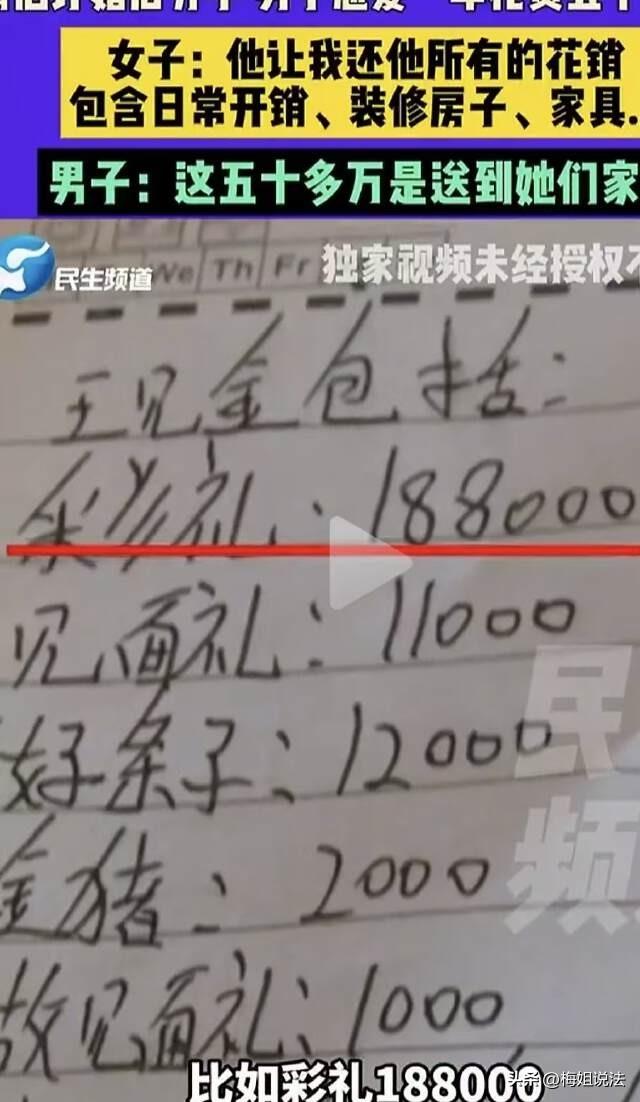 女子：他让我还他所有的花销
包含日常开销、装修房子、家具.
男子：这五十多万是送到她们家
民生频道
We Th Fr
独家视频未经授权不
王见金包括：
彩礼：188000
见面礼：11000
好条子：12000
金猪：2000
故见面礼：1000
民
频
比如彩礼188000
头条@梅姐说法